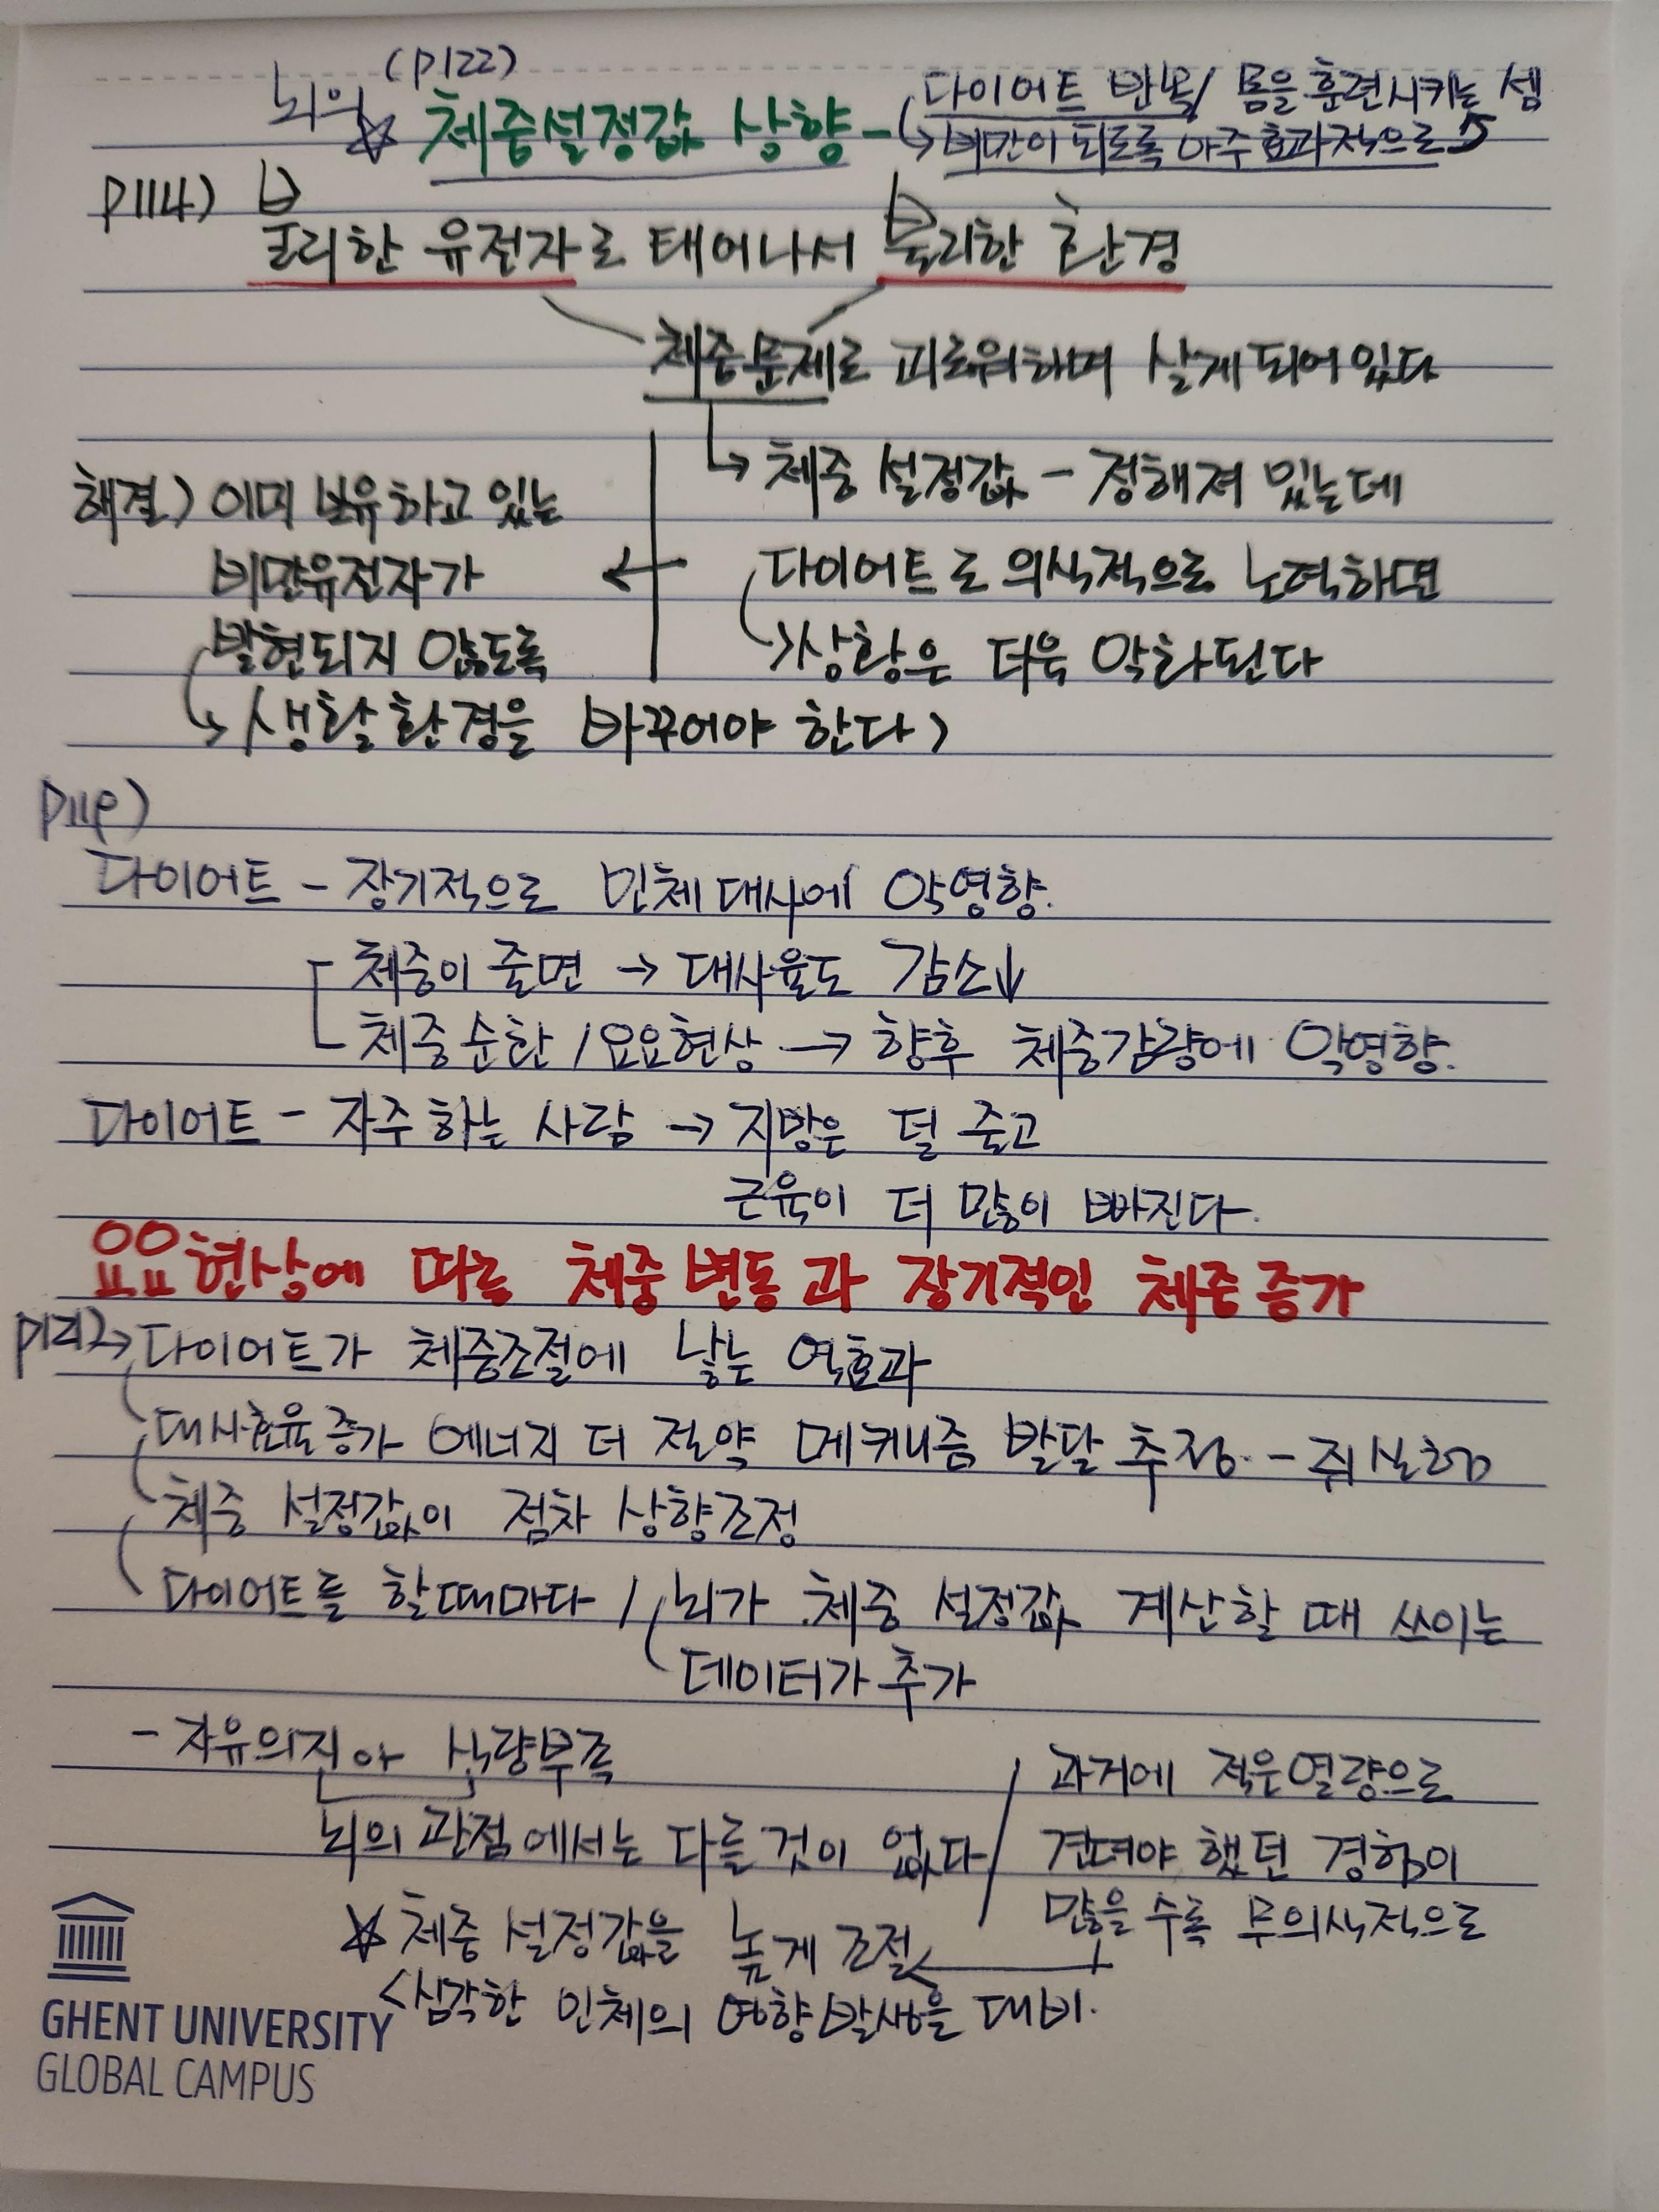 (p122)
뇌의 ☆ 체중설정값 상향 - 다이어트 반복/ 몸을 훈련시키는 셈
→ 비만이 되도록 아주 효과적으로
p114)
불리한 유전자로 태어나서 불리한 환경
체중문제로 괴로워하며 살게 되어있다
→ 체중 설정값 - 정해져 있는데
해결) 이미 보유하고 있는
비만유전자가 ← 다이어트로 의식적으로 노력하면
발현되지 않도록 → 상황은 더욱 악화된다
→ 생활환경을 바꾸어야 한다>
p119)
다이어트 - 장기적으로 인체대사에 악영향.
체중이 줄면 → 대사율도 감소↓
체중순환 / 요요현상 → 향후 체중감량에 악영향.
다이어트 - 자주하는 사람 → 지방은 덜 줄고
근육이 더 많이 빠진다.
요요현상에 따른 체중변동과 장기적인 체중증가
p121) → 다이어트가 체중조절에 낳는 역효과
대사효율증가 에너지 더 절약 메커니즘 발달 추정. - 쥐실험
체중 설정값이 점차 상향조정
다이어트를 할때마다 / 뇌가 체중 설정값 계산할 때 쓰이는
데이터가 추가
- 자유의지야 식량부족
뇌의 관점에서는 다를 것이 없다 / 과거에 적은열량으로
견뎌야 했던 경험이
많을 수록 무의식적으로
☆ 체중 설정값을 높게 조절 ←
<심각한 인체의 영향 발생을 대비.
GHENT UNIVERSITY
GLOBAL CAMPUS